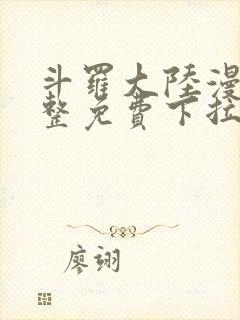 斗羅大陸漫
整免費下拉
廖翊